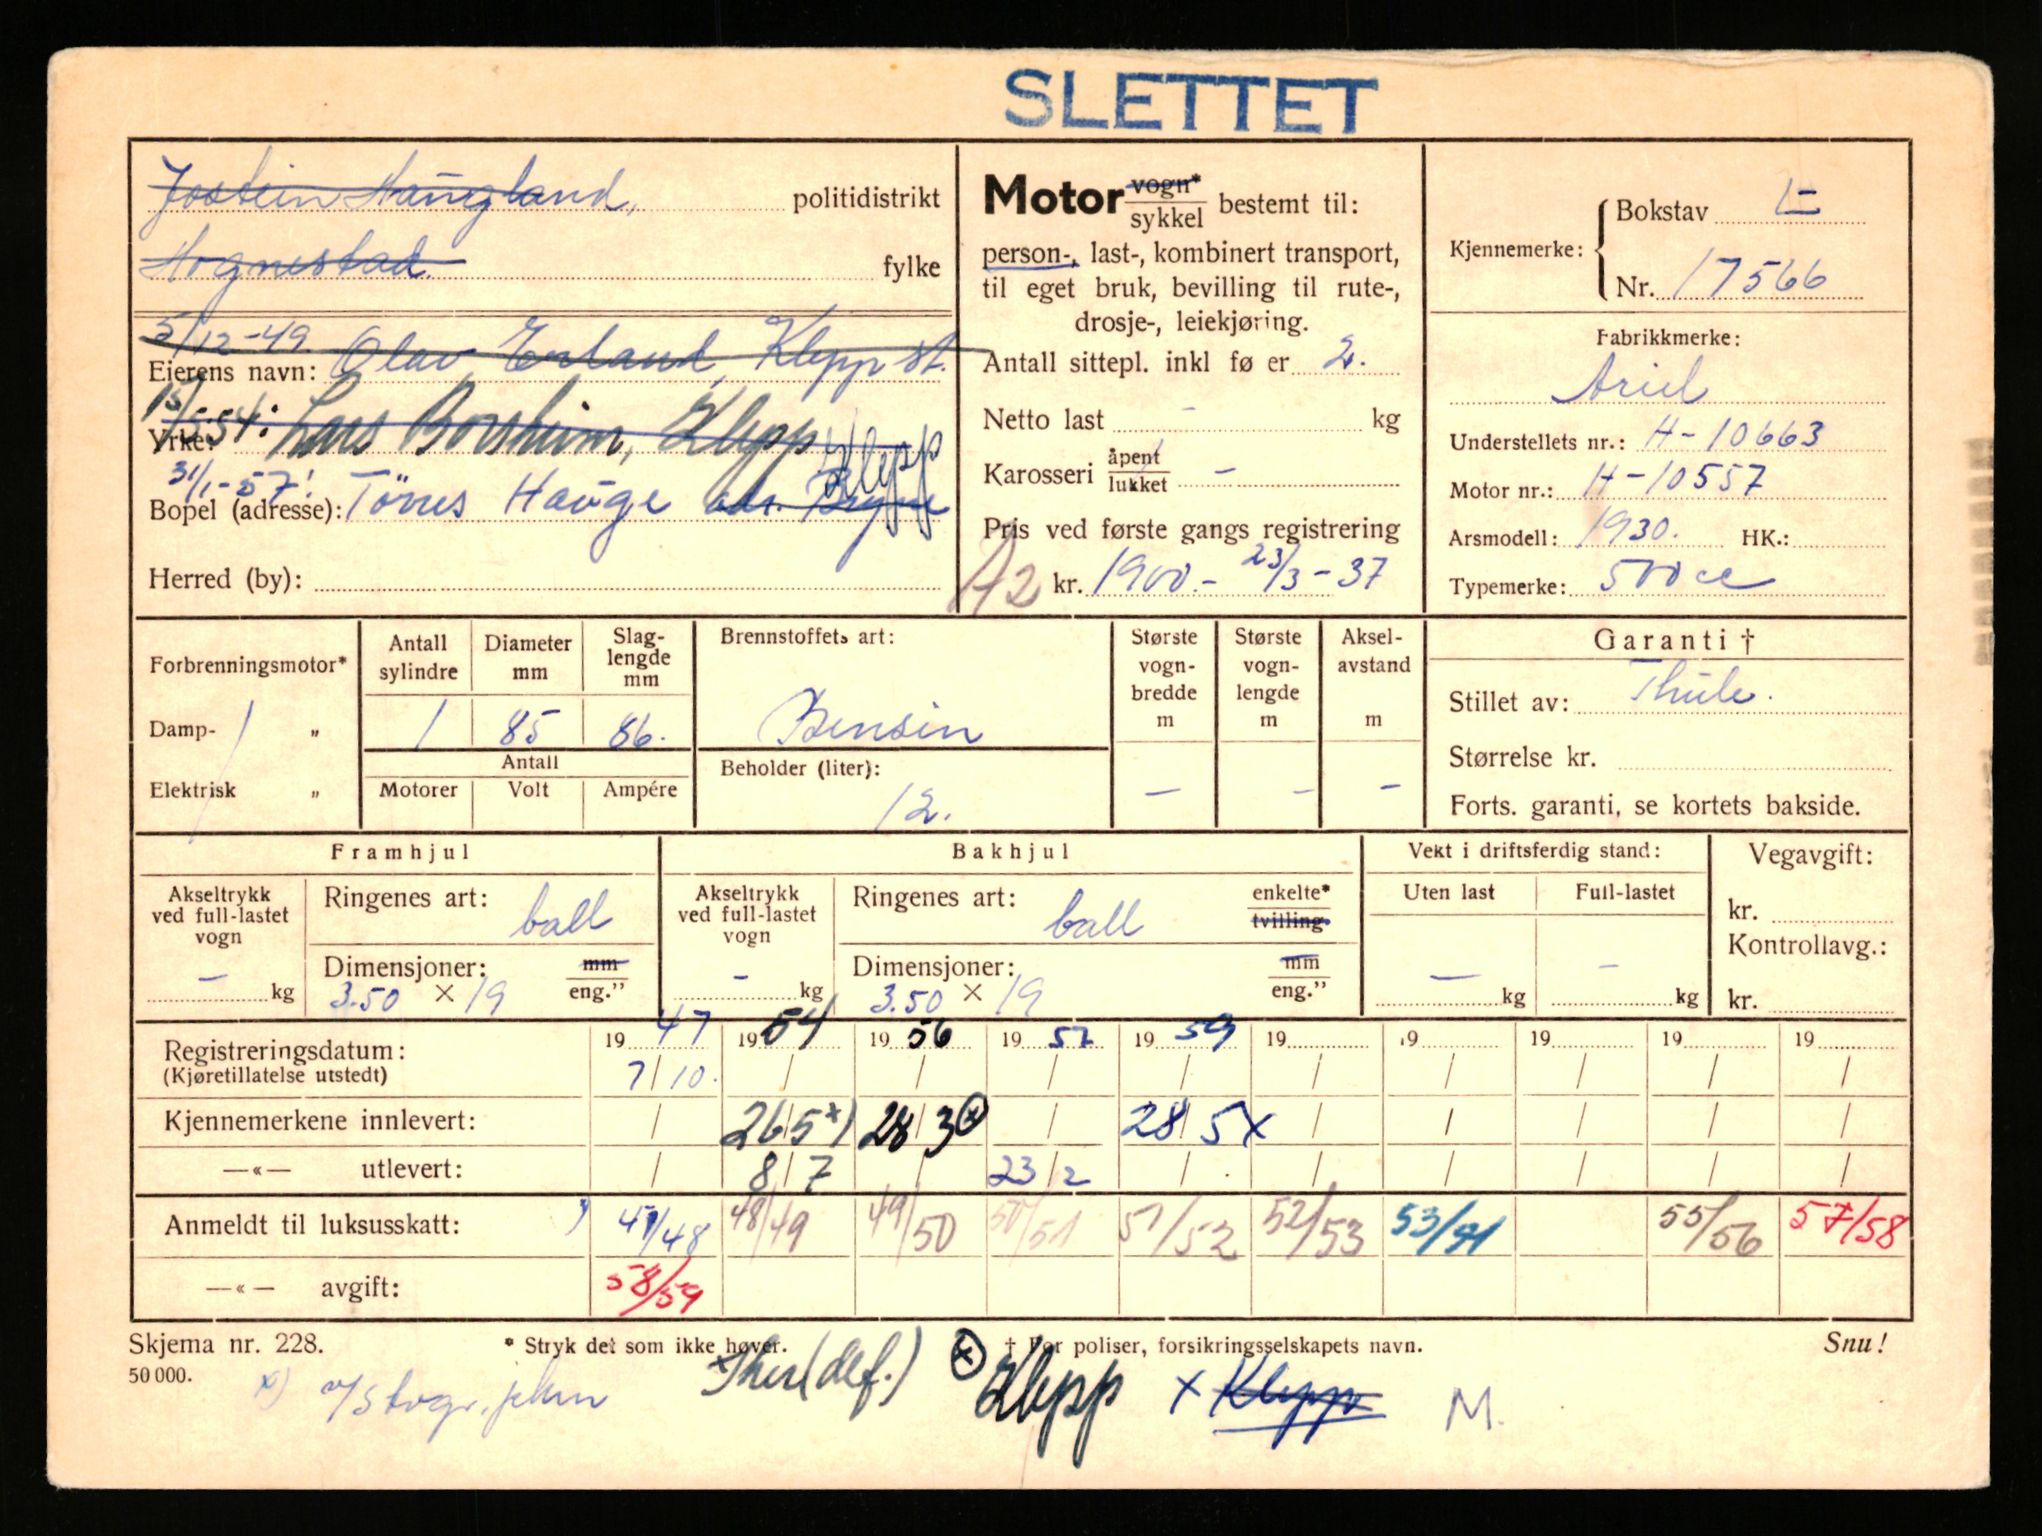 SLETTET
Jostein Haugland, politidistrikt
Hognestad. fylke
5/12-49 Olav Erland, Klepp st.
Eierens navn:
15/5-54: Lars Borsheim, Klepp
Yrke:
Klepp
31/1-57:
Bopel (adresse): Tönnes Hauge adr. Bryne
Herred (by):
Motor vogn*/sykkel bestemt til:
person-, last-, kombinert transport,
til eget bruk, bevilling til rute-,
drosje-, leiekjøring.
Antall sittepl. inkl fø er 2.
Netto last - kg
Karosseri åpent/lukket -
Pris ved første gangs registrering
A2 kr. 1900.- 23/3-37
Kjennemerke: Bokstav L
Nr. 17566
Fabrikkmerke:
Ariel
Understellets nr.: H-10663
Motor nr.: H-10557
Arsmodell: 1930. HK.:
Typemerke: 500 cc
Forbrenningsmotor*
Damp- „
Elektrisk „
Antall sylindre Diameter mm Slag-lengde mm
1 85 86.
Antall
Motorer Volt Ampére
Brennstoffets art:
Bensin
Beholder (liter):
12.
Største vogn-bredde m Største vogn-lengde m Aksel-avstand m
- - -
Garanti †
Stillet av: Thule.
Størrelse kr.
Forts. garanti, se kortets bakside.
Framhjul
Akseltrykk ved full-lastet vogn
- kg
Ringenes art: ball
Dimensjoner: mm/eng.”
3.50 × 19
Bakhjul
Akseltrykk ved full-lastet vogn
- kg
Ringenes art: ball enkelte*/tvilling.
Dimensjoner: mm/eng.”
3.50 × 19
Vekt i driftsferdig stand:
Uten last Full-lastet
- kg - kg
Vegavgift:
kr.
Kontrollavg.:
kr.
Registreringsdatum: 1947 1954 1956 1957 1959 19 19 19 19 19
(Kjøretillatelse utstedt) 7/10. / / / / / / / / /
Kjennemerkene innlevert: / 26/5*) 28/3 ⊗ / 28/5x / / / / /
—«— utlevert: / 8/7 23/2 / / / / / /
Anmeldt til luksusskatt: 47/48 48/49 49/50 50/51 51/52 52/53 53/54 55/56 57/58
—«— avgift: 58/59
Skjema nr. 228. * Stryk det som ikke høver. † For poliser, forsikringsselskapets navn. Snu!
50 000.
x) (def.) ⊗ Klepp x Klepp M.